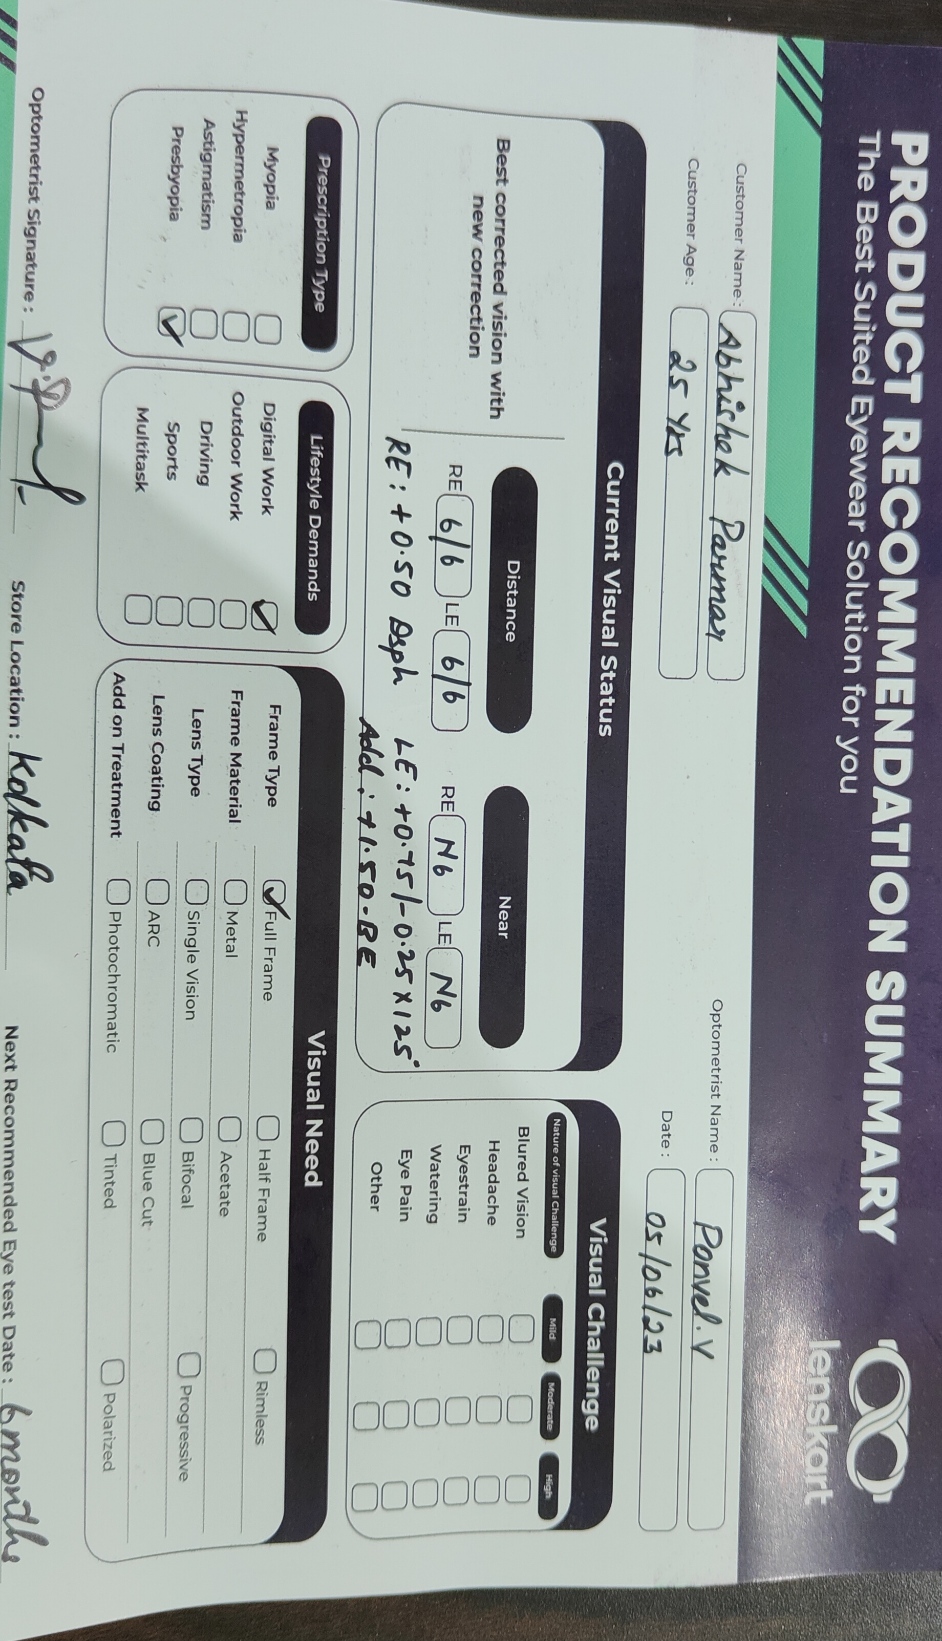 PRODUCT RECOMMENDATION SUMMARY
The Best Suited Eyewear Solution for you
lenskart
Customer Name : Abhishek Parmar
Optometrist Name : Ponvel.V
Customer Age : 25 Yrs
Date : 05/06/23
Current Visual Status
Distance Near
Best corrected vision with
new correction
RE 6/6 LE 6/6 RE N6 LE N6
RE : +0.50 Dsph LE : +0.75/-0.25 X 125°
Add : +1.50 - BE
Visual Challenge
Nature of visual Challenge Mild Moderate High
Blured Vision
Headache
Eyestrain
Watering
Eye Pain
Other
Prescription Type
Myopia
Hypermetropia
Astigmatism
Presbyopia ✓
Lifestyle Demands
Digital Work ✓
Outdoor Work
Driving
Sports
Multitask
Visual Need
Frame Type ✓ Full Frame Half Frame Rimless
Frame Material Metal Acetate
Lens Type Single Vision Bifocal Progressive
Lens Coating ARC Blue Cut
Add on Treatment Photochromatic Tinted Polarized
Optometrist Signature : Store Location : Kolkata Next Recommended Eye test Date : 6 months